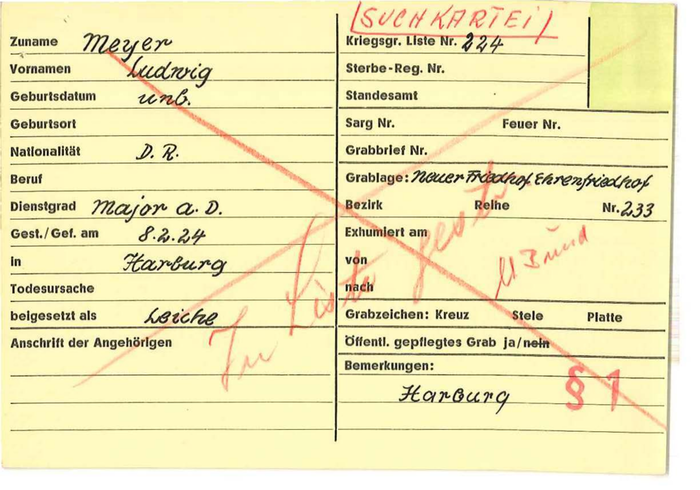 SUCHKARTEI
Zuname Meyer
Vornamen Ludwig
Geburtsdatum unb.
Geburtsort
Nationalität D. R.
Beruf
Dienstgrad Major a. D.
Gest./Gef. am 8.2.24
in Harburg
Todesursache
beigesetzt als Leiche
Anschrift der Angehörigen
Kriegsgr. Liste Nr. 224
Sterbe-Reg. Nr.
Standesamt
Sarg Nr. Feuer Nr.
Grabbrief Nr.
Grablage: Neuer Friedhof, Ehrenfriedhof
Bezirk Reihe Nr. 233
Exhumiert am
von
nach
Grabzeichen: Kreuz Stele Platte
Öffentl. gepflegtes Grab ja/nein
Bemerkungen:
Harburg
§ 1
In Liste gestr.